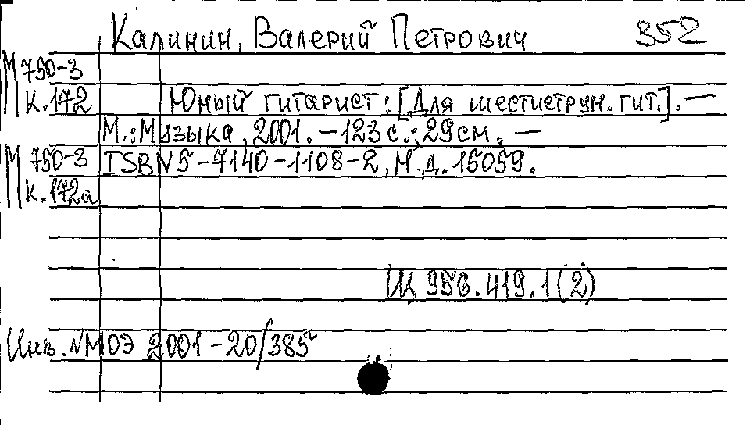 Калинин, Валерий Петрович 352
М 750-3
К.172 Юный гитарист: [Для шестиструн. гит.]. —
М.: Музыка, 2001. – 123 с.; 29 см. —
М 750-3 ISBN 5-7140-1108-2, Н.д. 15059.
К.172а
Щ 956.419.1(2)
Инв. NМОЭ 2001-20/385